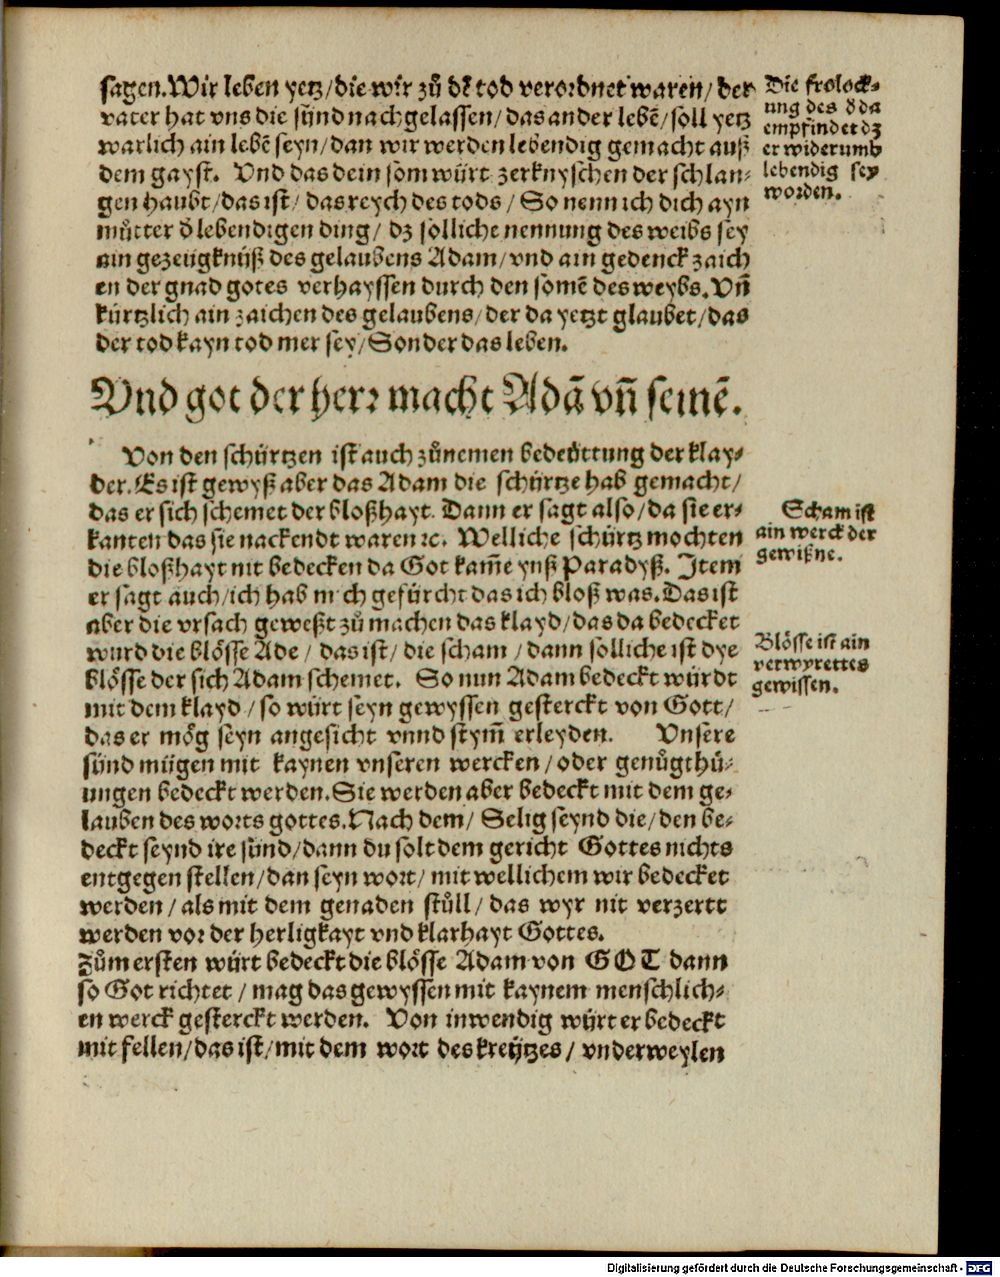 sagen. Wir leben yetz/die wir zů dē tod verordnet waren/der
vater hat vns die sünd nachgelassen/das ander lebē/soll yetz
warlich ain lebē seyn/dan wir werden lebendig gemacht auß
dem gayst. Vnd das dein som würt zerknyschen der schlan-
gen haubt/das ist/das reych des tods/So nenn ich dich ayn
můtter d̄ lebendigen ding/dz solliche nennung des weibs sey
ain gezeugknüß des gelaubens Adam/vnd ain gedenck zaich
en der gnad gotes verhayssen durch den somē des weybs. Vñ
kürtzlich ain zaichen des gelaubens/der da yetzt glaubet/das
der tod kayn tod mer sey/Sonder das leben.
Die frolock-
ung des d̄ da
empfindet dz
er widerumb
lebendig sey
worden.
Vnd got der herr macht Adā vñ seinē.
Von den schürtzen ist auch zůnemen bedeüttung der klay-
der. Es ist gewyß aber das Adam die schürtze hab gemacht/
das er sich schemet der bloßhayt. Dann er sagt also/da sie er-
kanten das sie nackendt waren ꝛc. Welliche schürtz mochten
die bloßhayt nit bedecken da Got kam̄e ynß Paradyß. Item
er sagt auch/ich hab mich gefürcht das ich bloß was. Das ist
aber die vrsach geweßt zů machen das klayd/das da bedecket
wurd die blösse Ade/das ist/die scham/dann solliche ist dye
blösse der sich Adam schemet. So nun Adam bedeckt würdt
mit dem klayd/so würt seyn gewyssen gesterckt von Gott/
das er mög seyn angesicht vnnd stym̄ erleyden. Vnsere
sünd mügen mit kaynen vnseren wercken/oder genůgthů-
ungen bedeckt werden. Sie werden aber bedeckt mit dem ge-
lauben des worts gottes. Nach dem/Selig seynd die/den be-
deckt seynd ire sünd/dann du solt dem gericht Gottes nichts
entgegen stellen/dan seyn wort/mit wellichem wir bedecket
werden/als mit dem genaden stůll/das wyr nit verzertt
werden vor der herligkayt vnd klarhayt Gottes.
Zům ersten würt bedeckt die blösse Adam von GOT dann
so Got richtet/mag das gewyssen mit kaynem menschlich-
en werck gesterckt werden. Von inwendig würt er bedeckt
mit fellen/das ist/mit dem wort des kreützes/vnderweylen
Scham ist
ain werck der
gewißne.
Blösse ist ain
verwyrettes
gewissen.
Digitalisierung gefördert durch die Deutsche Forschungsgemeinschaft - DFG